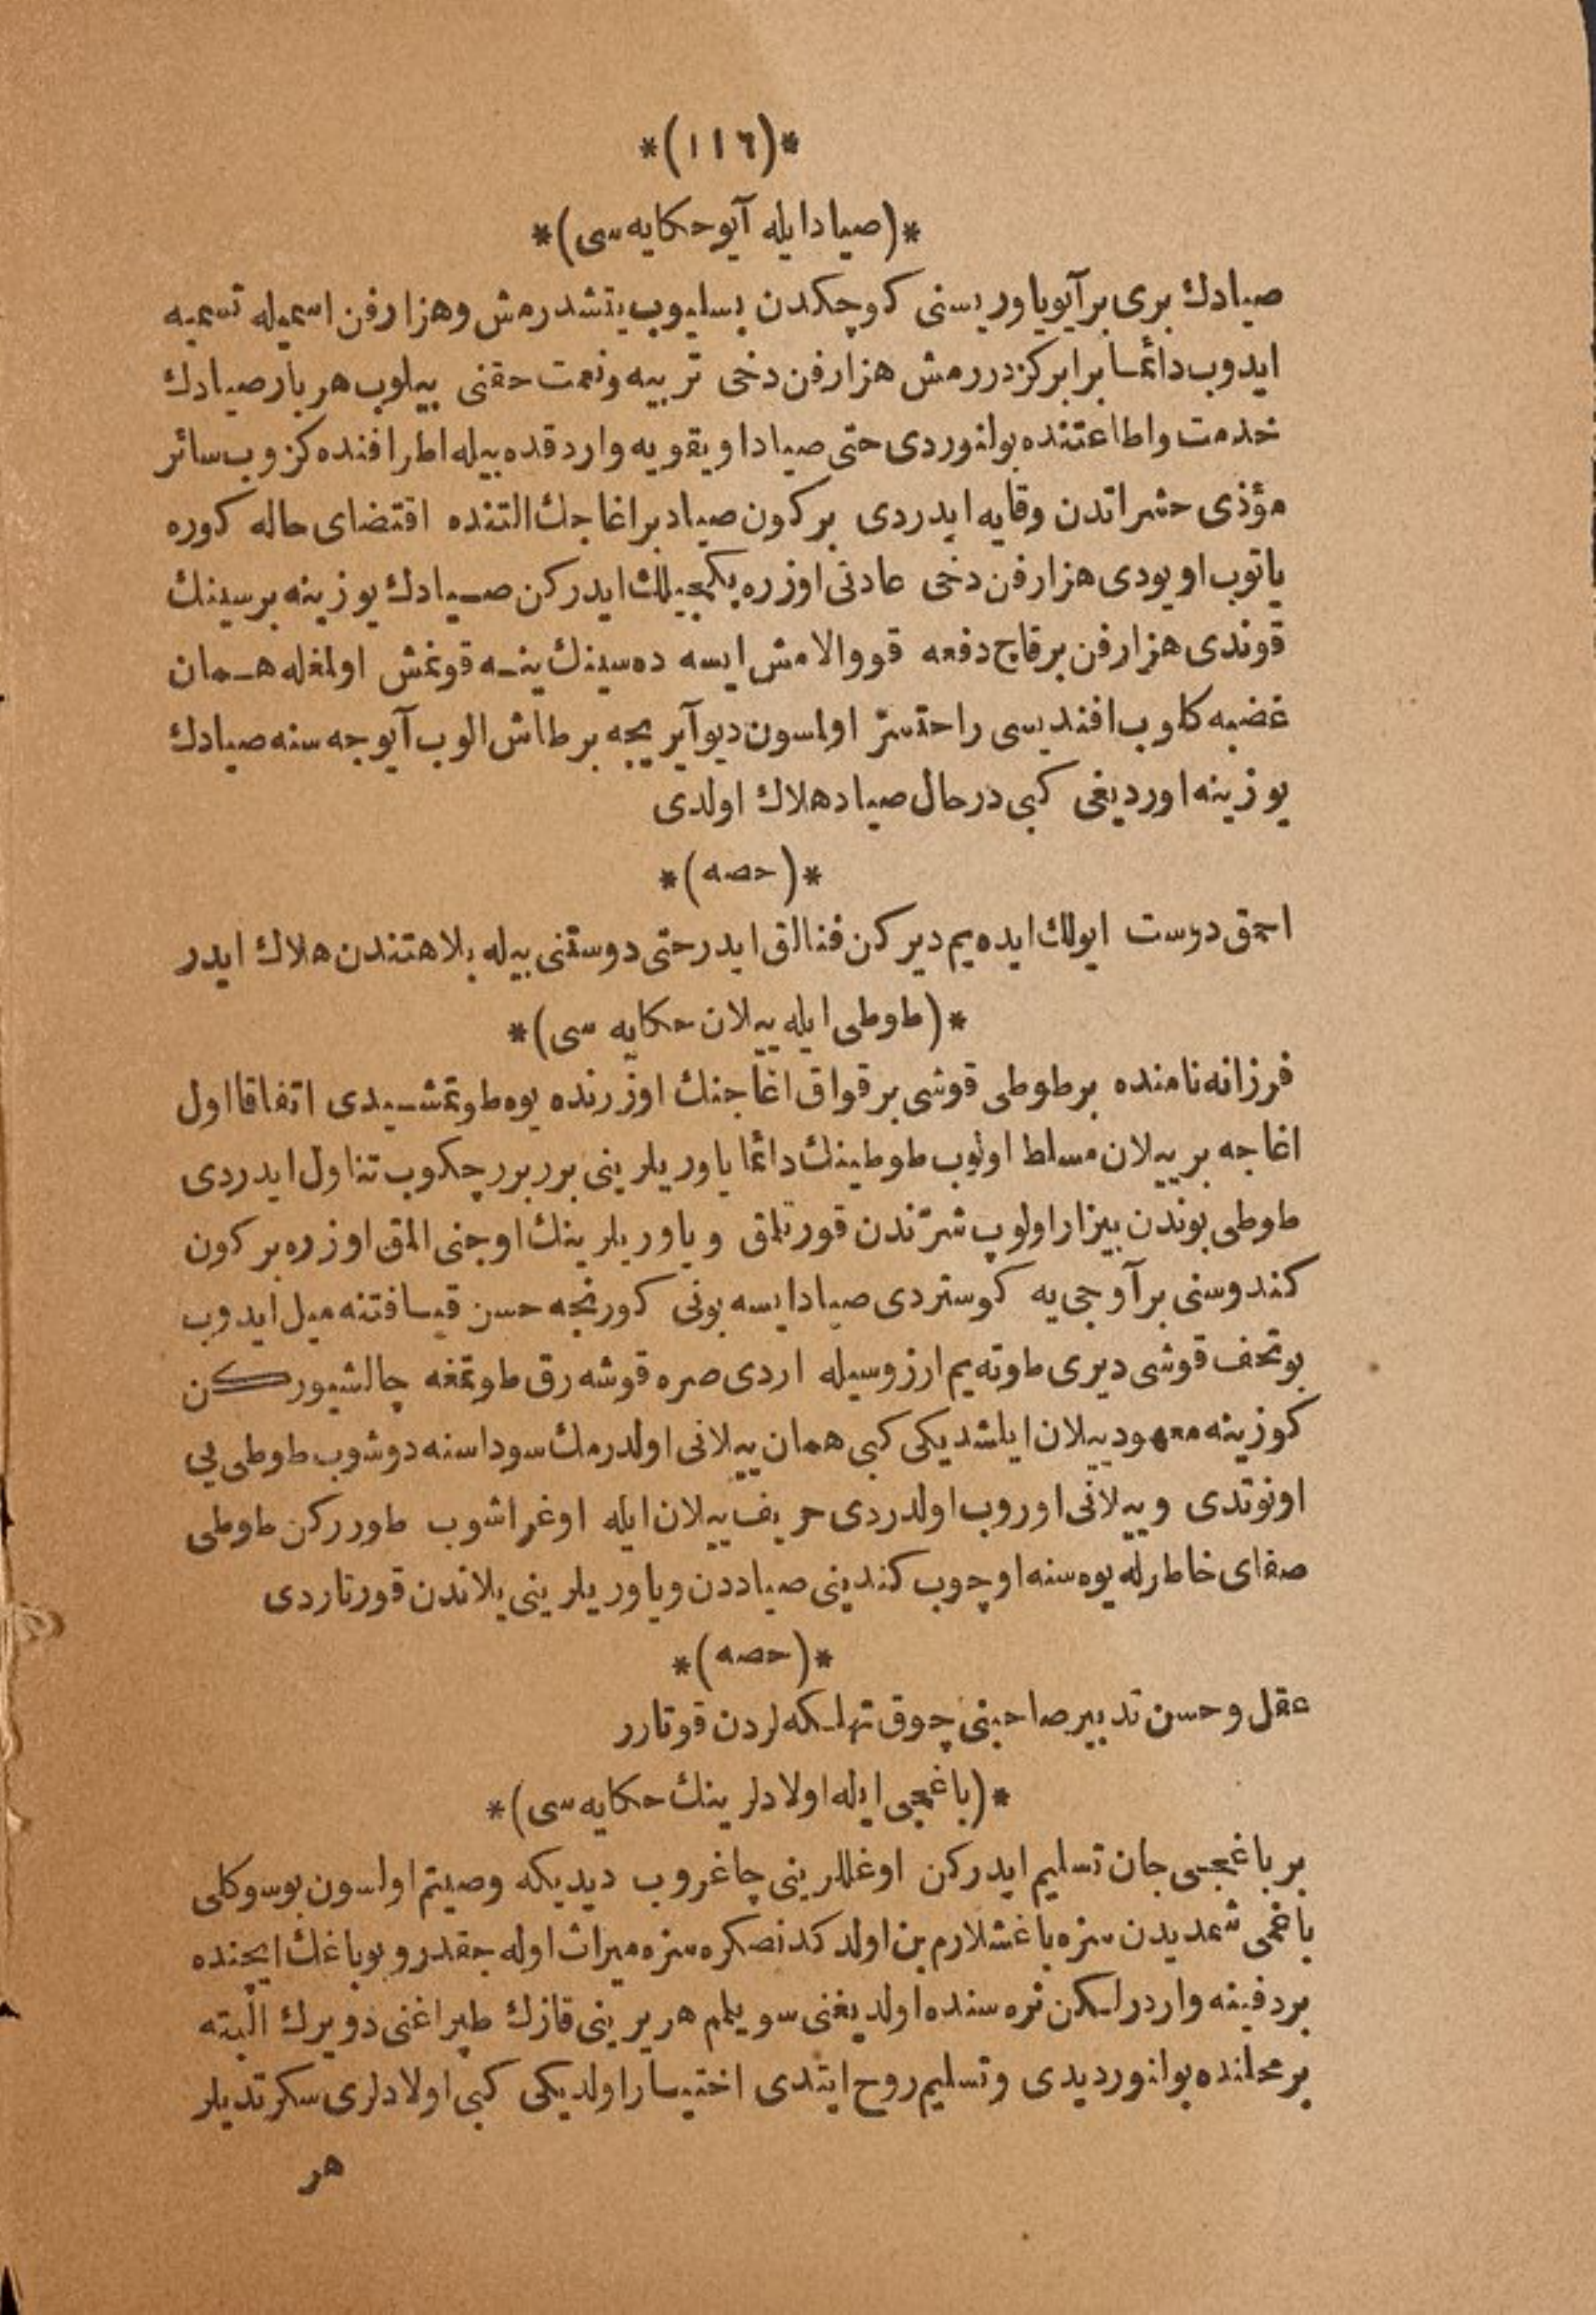 *(١١٦)*
*(صياد ايله آيو حكايه سى)*
صيادك برى بر آيو ياوريسنى كوچكدن بسليوب يتشدرمش وهزارفن اسميله تسميه
ايدوب دائما برابر كزدررمش هزارفن دخى تربيه ونعمت حقنى بيلوب هربار صيادك
خدمت واطاعتنده بولنوردى حتى صياد اويقويه واردقده بيله اطرافنده كزوب سائر
مؤذى حشراتدن وقايه ايدردى بر كون صياد بر اغاجك التنده اقتضاى حاله كوره
ياتوب اويودى هزارفن دخى عادتى اوزره بكجيلك ايدركن صيادك يوزينه بر سينك
قوندى هزارفن بر قاچ دفعه قووالامش ايسه ده سينك ينه قونمش اولمغله همان
غضبه كلوب افنديسى راحتسز اولمسون ديو آيريجه بر طاش الوب آيوجه سنه صيادك
يوزينه اورديغى كبى درحال صياد هلاك اولدى
*(حصه)*
احمق دوست ايولك ايده يم ديركن فنالق ايدر حتى دوستنى بيله بلاهتندن هلاك ايدر
*(طوطى ايله ييلان حكايه سى)*
فرزانه نامنده بر طوطى قوشى بر قواق اغاجنك اوزرنده يوه طوتمشيدى اتفاقا اول
اغاجه بر ييلان مسلط اولوب طوطينك دائما ياوريلرينى برر برر چكوب تناول ايدردى
طوطى بوندن بيزار اولوپ شرّندن قورتلمق وياوريلرينك اوجنى المق اوزره بر كون
كندوسنى بر آوجى يه كوستردى صياد ايسه بونى كورنجه حسن قيافتنه ميل ايدوب
بو تحف قوشى ديرى طوته يم ارزوسيله اردى صره قوشه رق طوتمغه چالشيوركن
كوزينه معهود ييلان ايلشديكى كبى همان ييلانى اولدرمك سوداسنه دوشوب طوطى يى
اونوتدى وييلانى اوروب اولدردى حريف ييلان ايله اوغراشوب طورركن طوطى
صفاى خاطرله يوه سنه اوچوب كندينى صياددن وياوريلرينى يلاندن قورتاردى
*(حصه)*
عقل وحسن تدبير صاحبنى چوق تهلكه لردن قوتارر
*(باغجى ايله اولادلرينك حكايه سى)*
بر باغجى جان تسليم ايدركن اوغللرينى چاغروب ديديكه وصيتم اولسون بو سوكلى
باغمى شمديدن سزه باغشلارم بن اولدكدنصكره سزه ميراث اوله جقدر وبو باغك ايچنده
بر دفينه واردر لكن نره سنده اولديغنى سويلمم هر يرينى قازك طپراغنى دويرك البته
بر محلنده بولنور ديدى وتسليم روح ايتدى اختيار اولديكى كبى اولادلرى سكرتديلر
هر